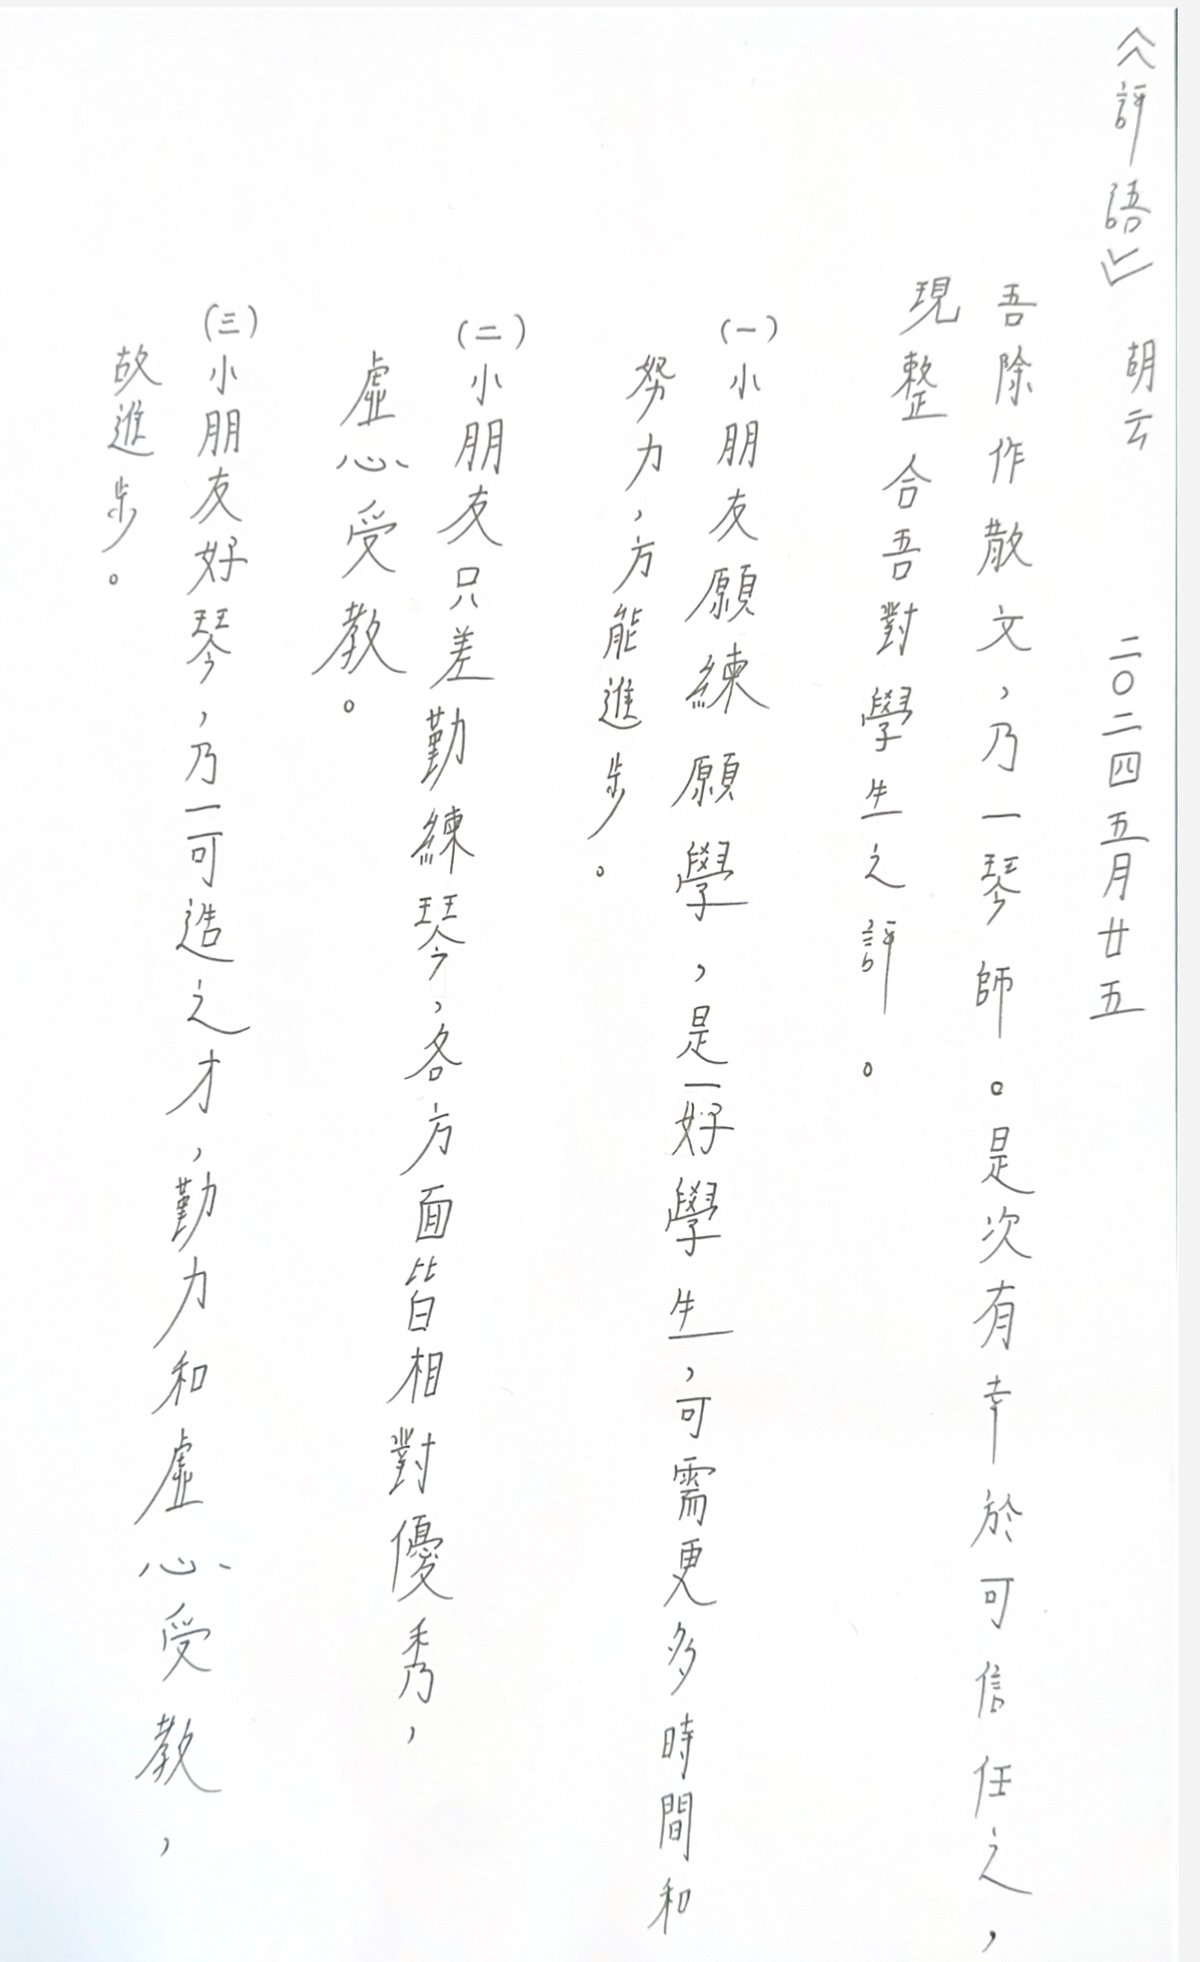 《評語》 胡云 二〇二四五月廿五
吾除作散文，乃一琴師。是次有幸於可信任之，
現整合吾對學生之評。
(一)小朋友願練願學，是一好學生，可需更多時間和
努力，方能進步。
(二)小朋友只差勤練琴，各方面皆相對優秀，
虛心受教。
(三)小朋友好琴，乃一可造之才，勤力和虛心受教，
故進步。